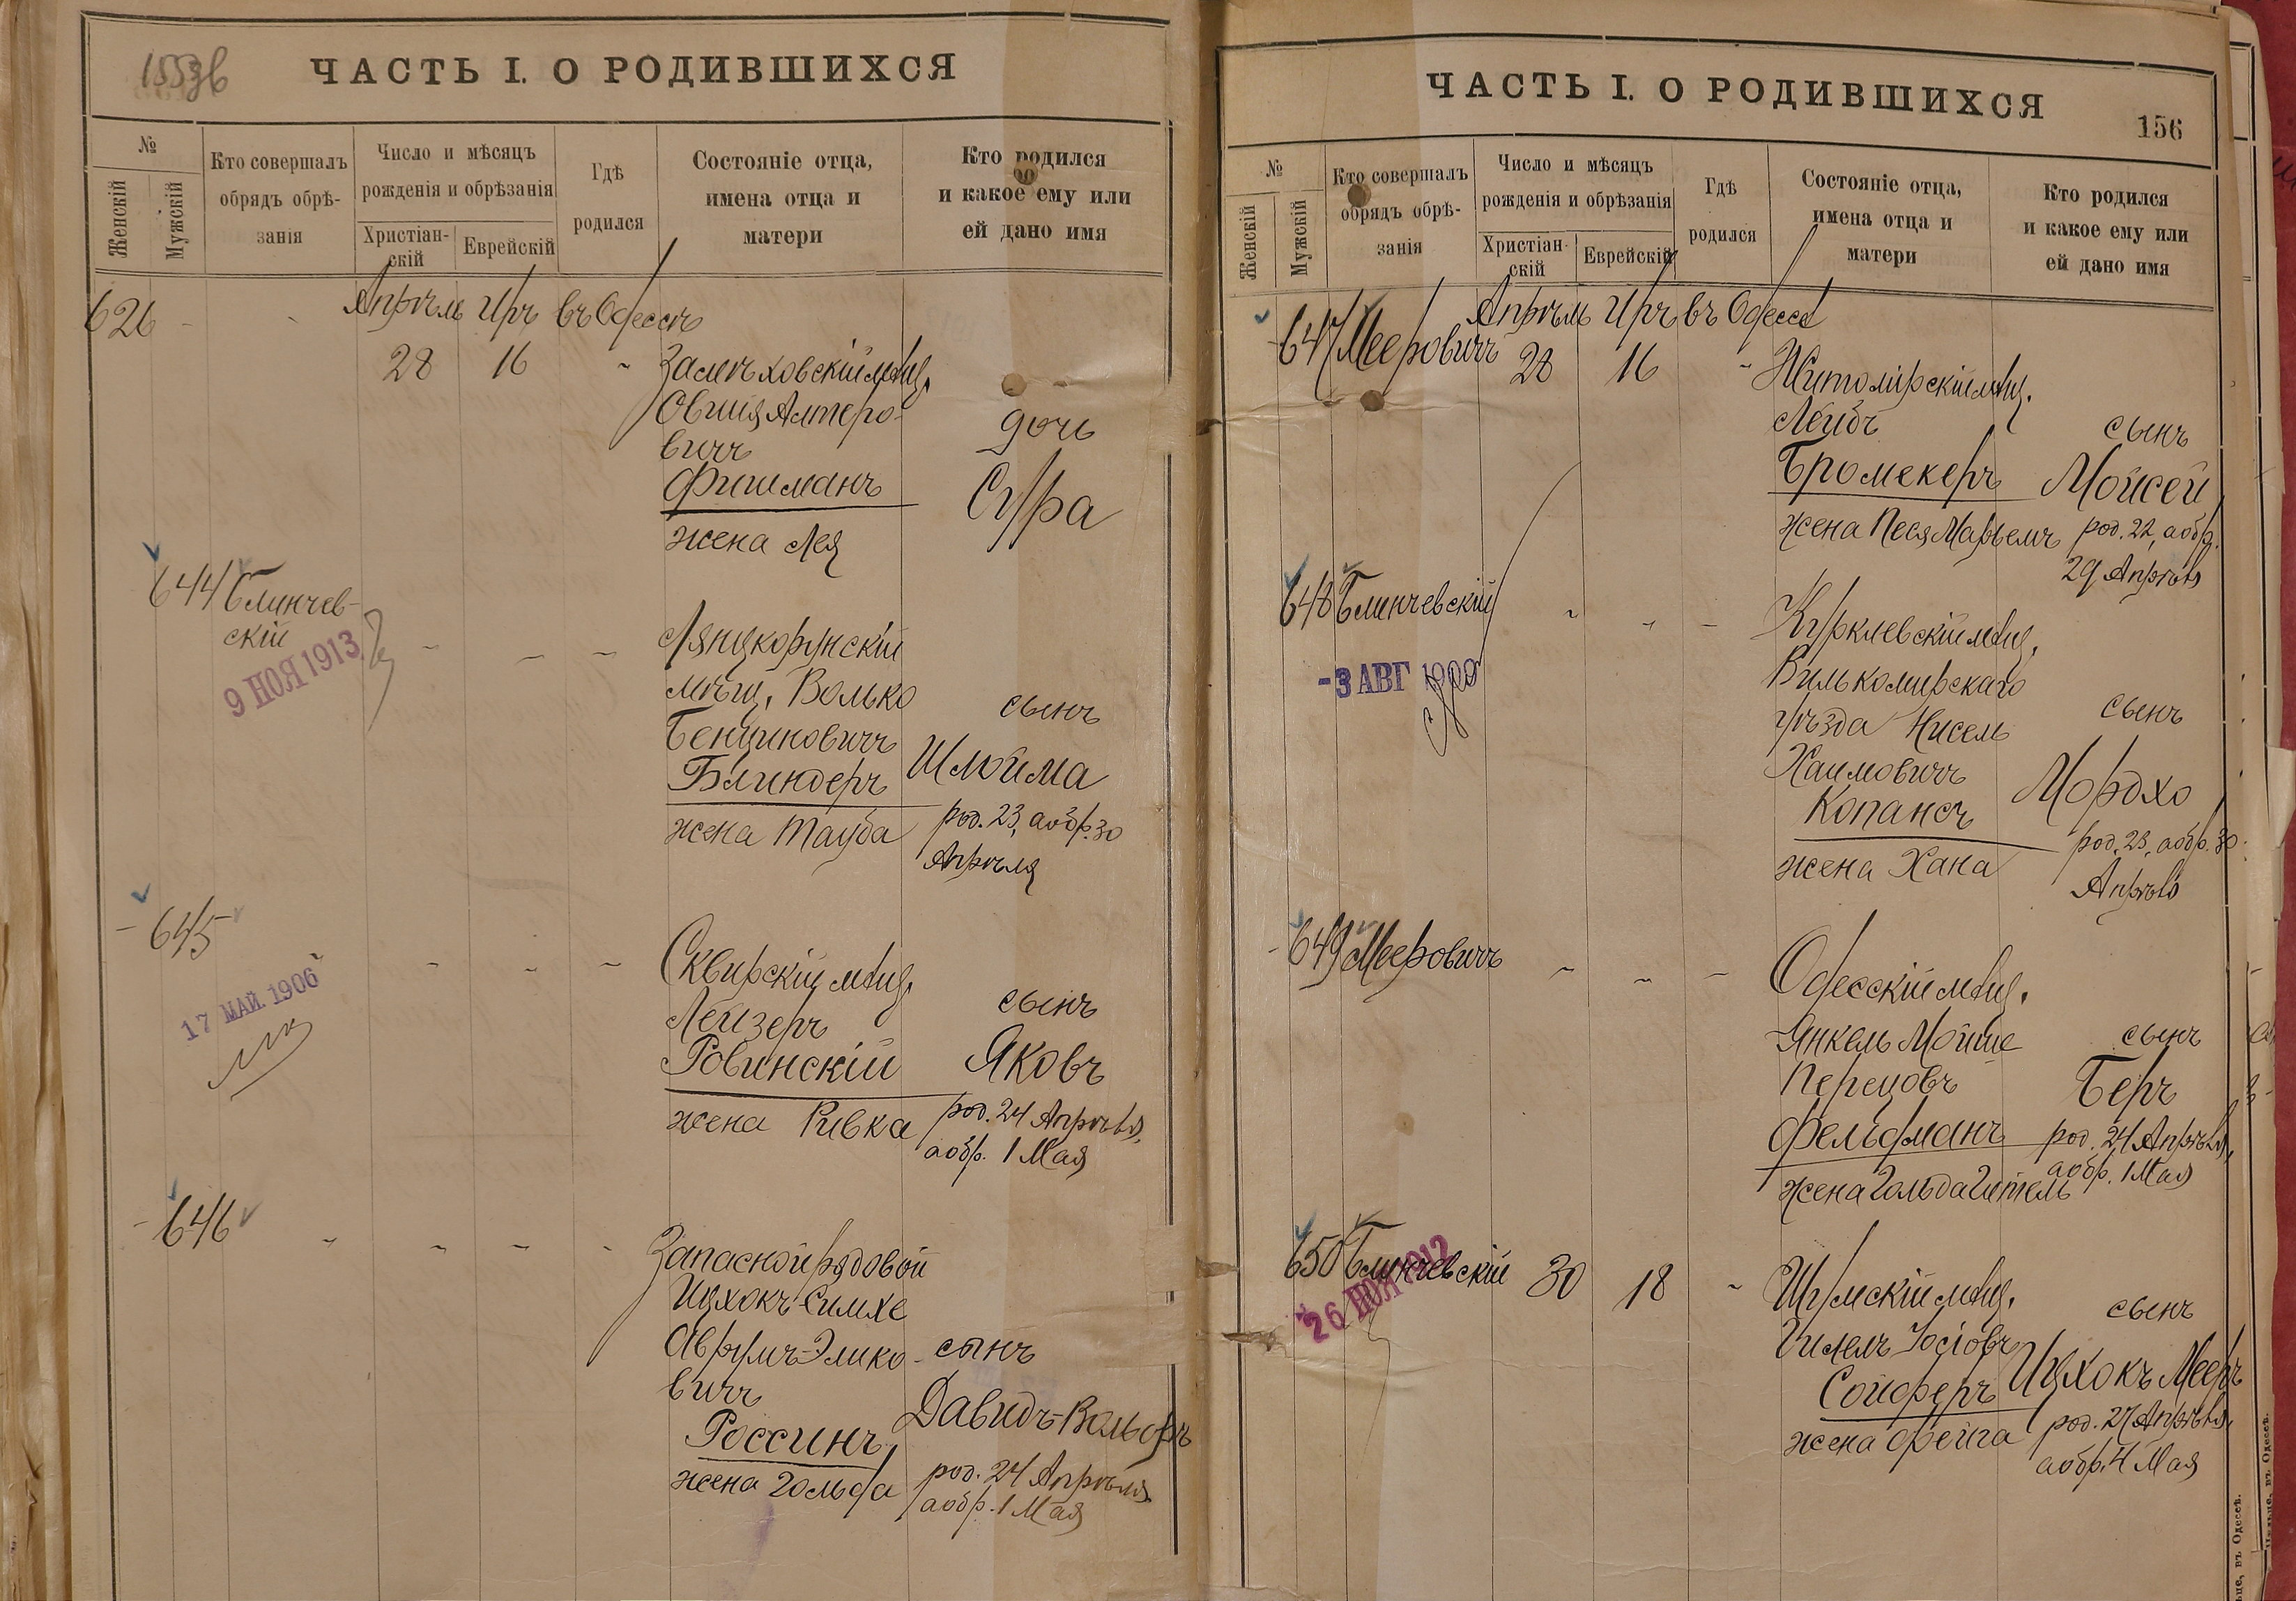 155об
ЧАСТЬ I. О РОДИВШИХСЯ
№
Женскій
Мужскій
Кто совершалъ
обрядъ обрѣ-
занія
Число и мѣсяцъ
рожденія и обрѣзанія
Христіан-
скій
Еврейскій
Гдѣ
родился
Состояніе отца,
имена отца и
матери
Кто родился
и какое ему или
ей дано имя
626 - - Апрѣль Иръ въ Одессѣ
28 16 - Залеховскій мѣщ.
Овшія Алтеро-
вичъ
дочь
Фишманъ
Сура
жена Лея
644 Блинчев-
скій
9 НОЯ 1913
- - - Ляпцкорунскій
мѣщ. Волько
сынъ
Бенціновичъ
Блиндеръ Шлойма
жена Тауба род. 23, а обр. 30
Апрѣля
645
17 МАЙ 1906
- - - Сквирскій мѣщ.
Лейзеръ сынъ
Ровинскій Яковъ
жена Ривка род. 24 Апрѣля,
а обр. 1 Мая
646 - - - - Запасной рядовой
Ицхокъ-Симхе
Аврумъ-Элико- сынъ
вичъ
Давидъ-Вольфъ
Россинъ
жена Гольда род. 24 Апрѣля
а обр. 1 Мая
ЧАСТЬ I. О РОДИВШИХСЯ
156
№
Женскій
Мужскій
Кто совершалъ
обрядъ обрѣ-
занія
Число и мѣсяцъ
рожденія и обрѣзанія
Христіан-
скій
Еврейскій
Гдѣ
родился
Состояніе отца,
имена отца и
матери
Кто родился
и какое ему или
ей дано имя
Апрѣль Иръ въ Одессѣ
647 Мееровичъ 28 16 - Житомірскій мѣщ.
Лейбъ сынъ
Бромекеръ Мойсей
жена Песя Марьемъ род. 22, а обр.
29 Апрѣля
648 Блинчевскій - - - Куркліевскій мѣщ.
-3 АВГ 1909
Вилькомирскаго
уѣзда Нисель сынъ
Хаимовичъ
Мордхо
Копансъ
род. 23, а обр. 30
жена Хана
Апрѣля
649 Мееровичъ - - - Одесскій мѣщ.
Янкель Мойше сынъ
Перецовъ Беръ
Фельдманъ род. 24 Апрѣля,
а обр. 1 Мая
жена Гольда Гитель
650 Блинчевскій 30 18 - Шумскій мѣщ.
26 НОЯ 1912
сынъ
Гилель Іосіовъ
Ицхокъ Мееръ
Сойферъ
род. 27 Апрѣля,
жена Фейга
а обр. 4 Мая
въ Одессѣ.
въ Одессѣ.